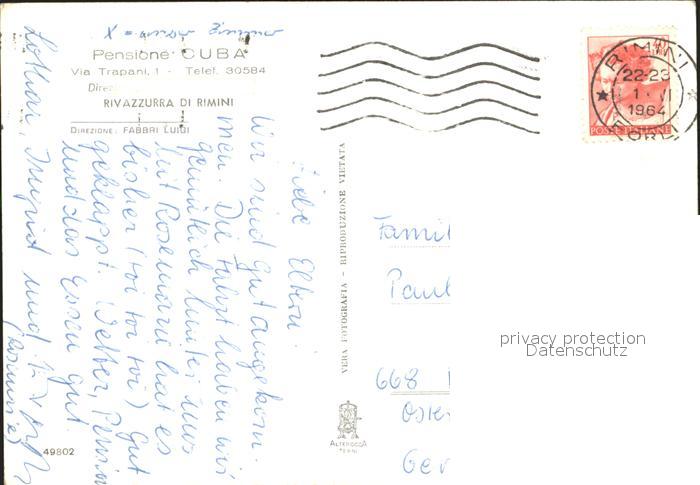 X = unser Zimmer
Pensione CUBA
Via Trapani, 1 - Telef. 30584
RIVAZZURRA DI RIMINI
DIREZIONE: FABBRI LUIGI
Liebe Eltern!
Wir sind gut angekom-
men. Die Fahrt haben wir
gemütlich hinter uns
mit Rosemarie hat es
bisher (toi toi toi) gut
geklappt. Wetter, Pension
und das Essen gut.
Lothar, Ingrid und
(Rosemarie)
49802
VERA FOTOGRAFIA - RIPRODUZIONE VIETATA
ALTEROCCA
TERNI
RIMINI
22-23
1 · VI
1964
FORLI
POSTE ITALIANE
Famil
Paul
668
Oster
Ger
privacy protection
Datenschutz